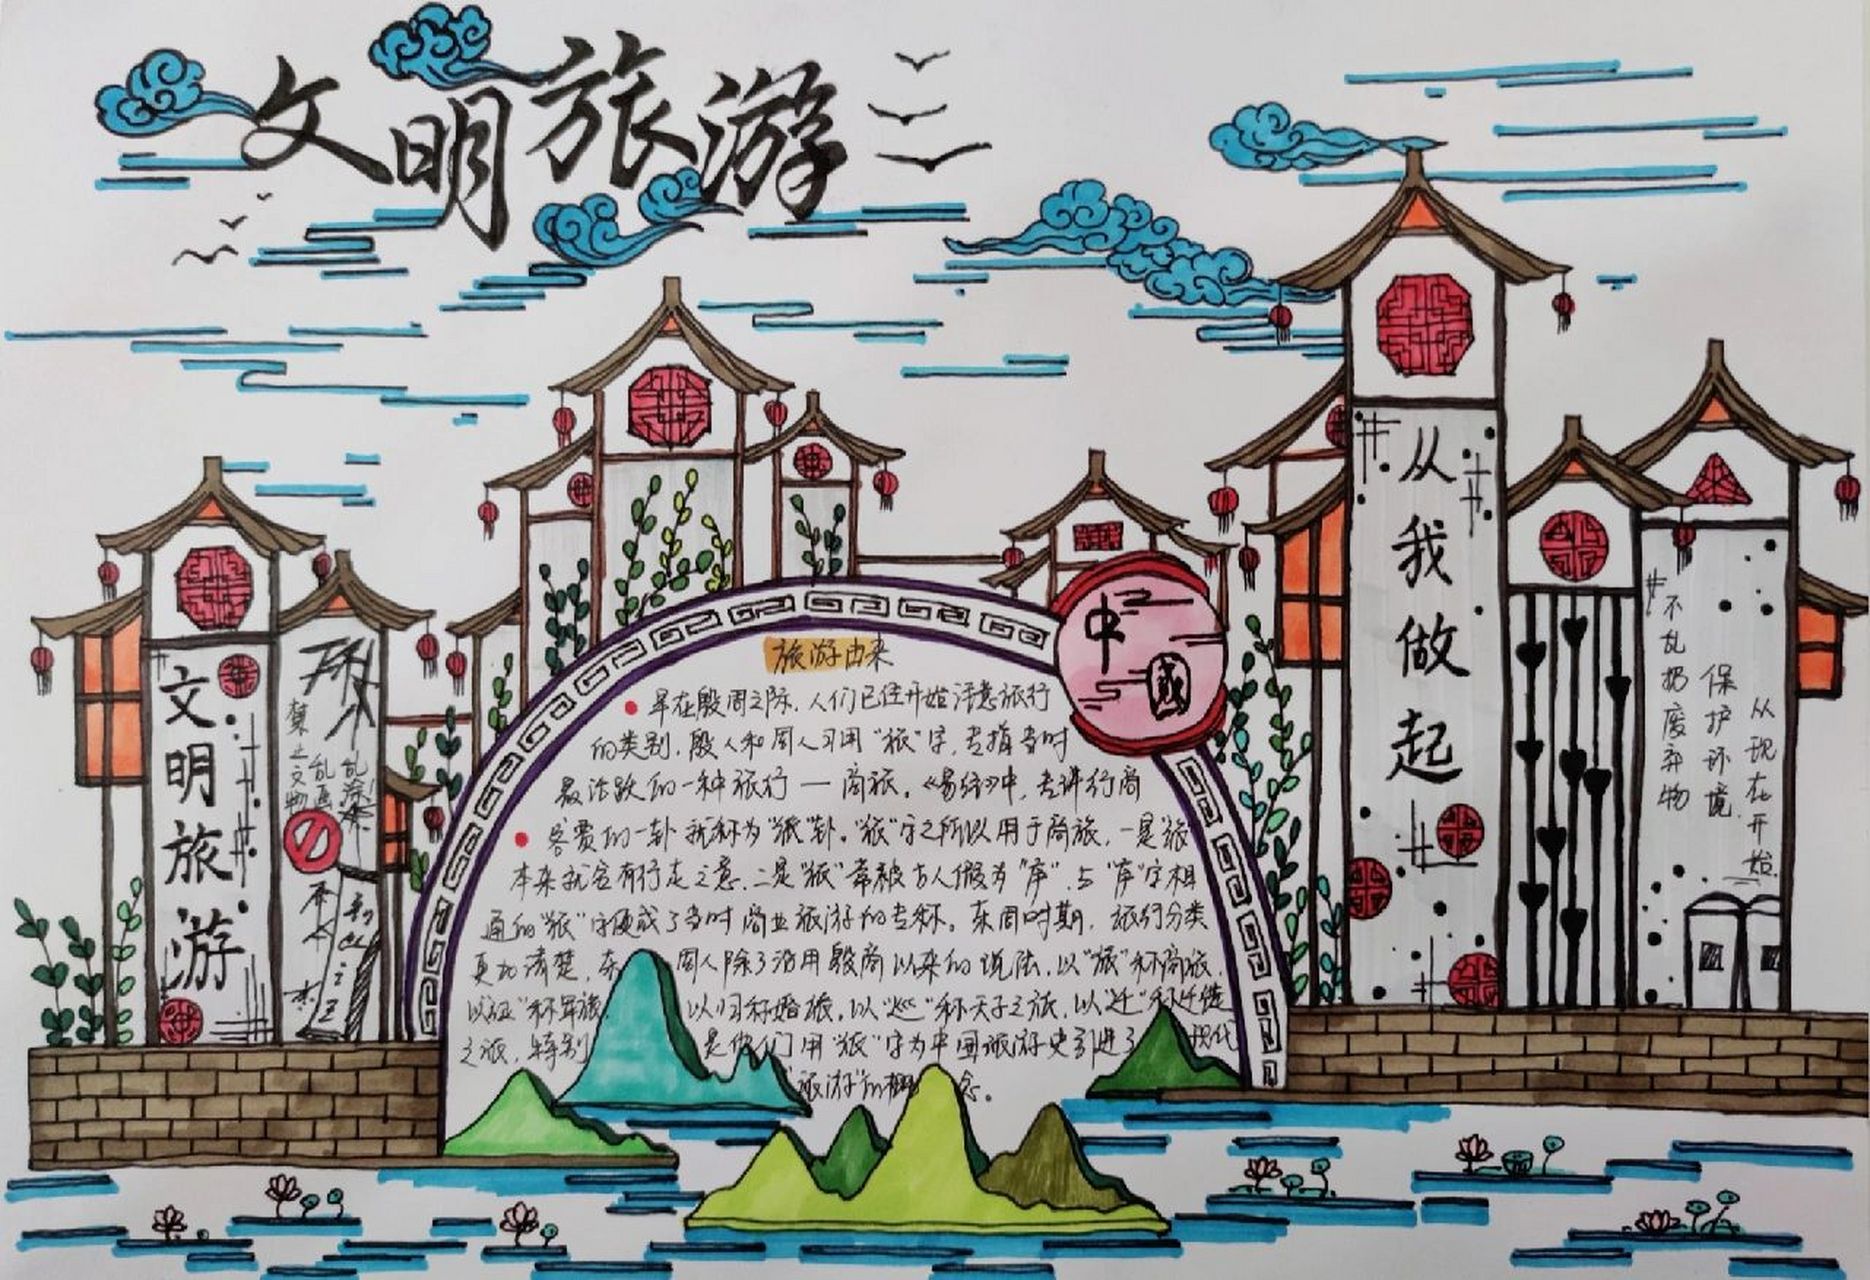 文明旅游
旅游由来
早在殷周之际，人们已经开始注意旅行
的类别，殷人和周人习用“旅”字，专指当时
最活跃的一种旅行—商旅。《易经》中，专讲行商
客贾的一卦就称为“旅”卦。“旅”字之所以用于商旅，一是“旅”
本来就含有行走之意，二是“旅”常被古人假为“庐”，与“庐”字相
通的“旅”字便成了当时商业旅游的专称。东周时期，旅行分类
更加清楚，东周人除了沿用殷商以来的说法，以“旅”称商旅，
以“征”称军旅，以归称婚旅，以“巡”称天子之旅，以“迁”称迁徙
之旅，特别是他们用“旅”字为中国旅游史引进了现代
“旅游”的概念。
中国
文明旅游
禁止文物
乱画
乱涂
从我做起
不乱扔废弃物
保护环境
从现在开始